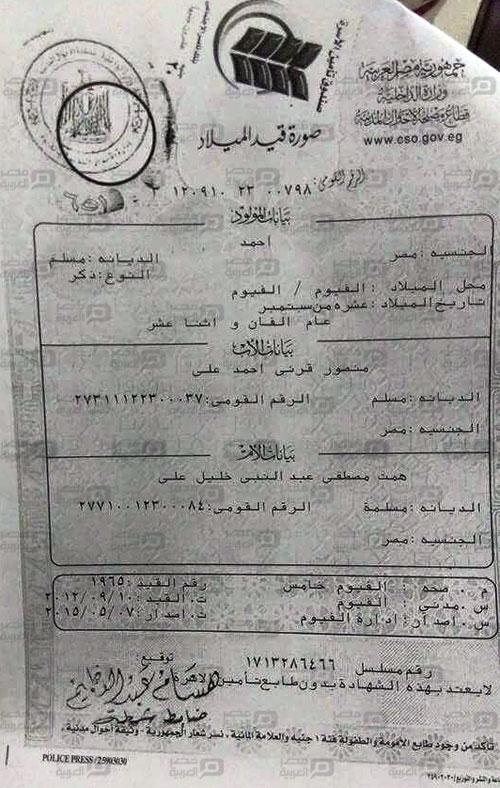 جمهورية مصر العربية
وزارة الداخلية
قطاع مصلحة الأحوال المدنية
www.cso.gov.eg
صورة قيد الميلاد
الرقم القومى: ٠٠٧٩٨ ٢٣ ١٢٠٩١٠
بيانات المولود
احمد
الجنسيه : مصر الديانه : مسلم
النوع : ذكر
محل الميلاد : الفيوم / الفيوم
تاريخ الميلاد : عشره من سبتمبر
عام الفان و اثنا عشر
بيانات الأب
منصور قرنى احمد على
الديانه : مسلم الرقم القومى : ٢٧٣١١١٢٢٣٠٠٠٣٧
الجنسيه : مصر
بيانات الأم
همت مصطفى عبد النبى خليل على
الديانه : مسلمة الرقم القومى : ٢٧٧١٠٠١٢٣٠٠٠٨٤
الجنسيه : مصر
م . صحه : الفيوم خامس رقم القيد : ١٩٦٥
س . مدنى : الفيوم ت . القيد : ٢٠١٢/٠٩/١٠
س . اصدار : ادارة الفيوم ت . اصدار : ٢٠١٥/٠٥/٠٧
رقم مسلسل ١٧١٣٢٨٦٤٦٦ توقيع
لا يعتد بهذه الشهادة بدون طابع تأمين الاسرة
ضابط شرطى
تأكد من وجود طابع الأمومة والطفولة فئة ١ جنيه والعلامة المائية ، نسر شعار الجمهورية - وثيقة أحوال مدنية .
POLICE PRESS / 25903030